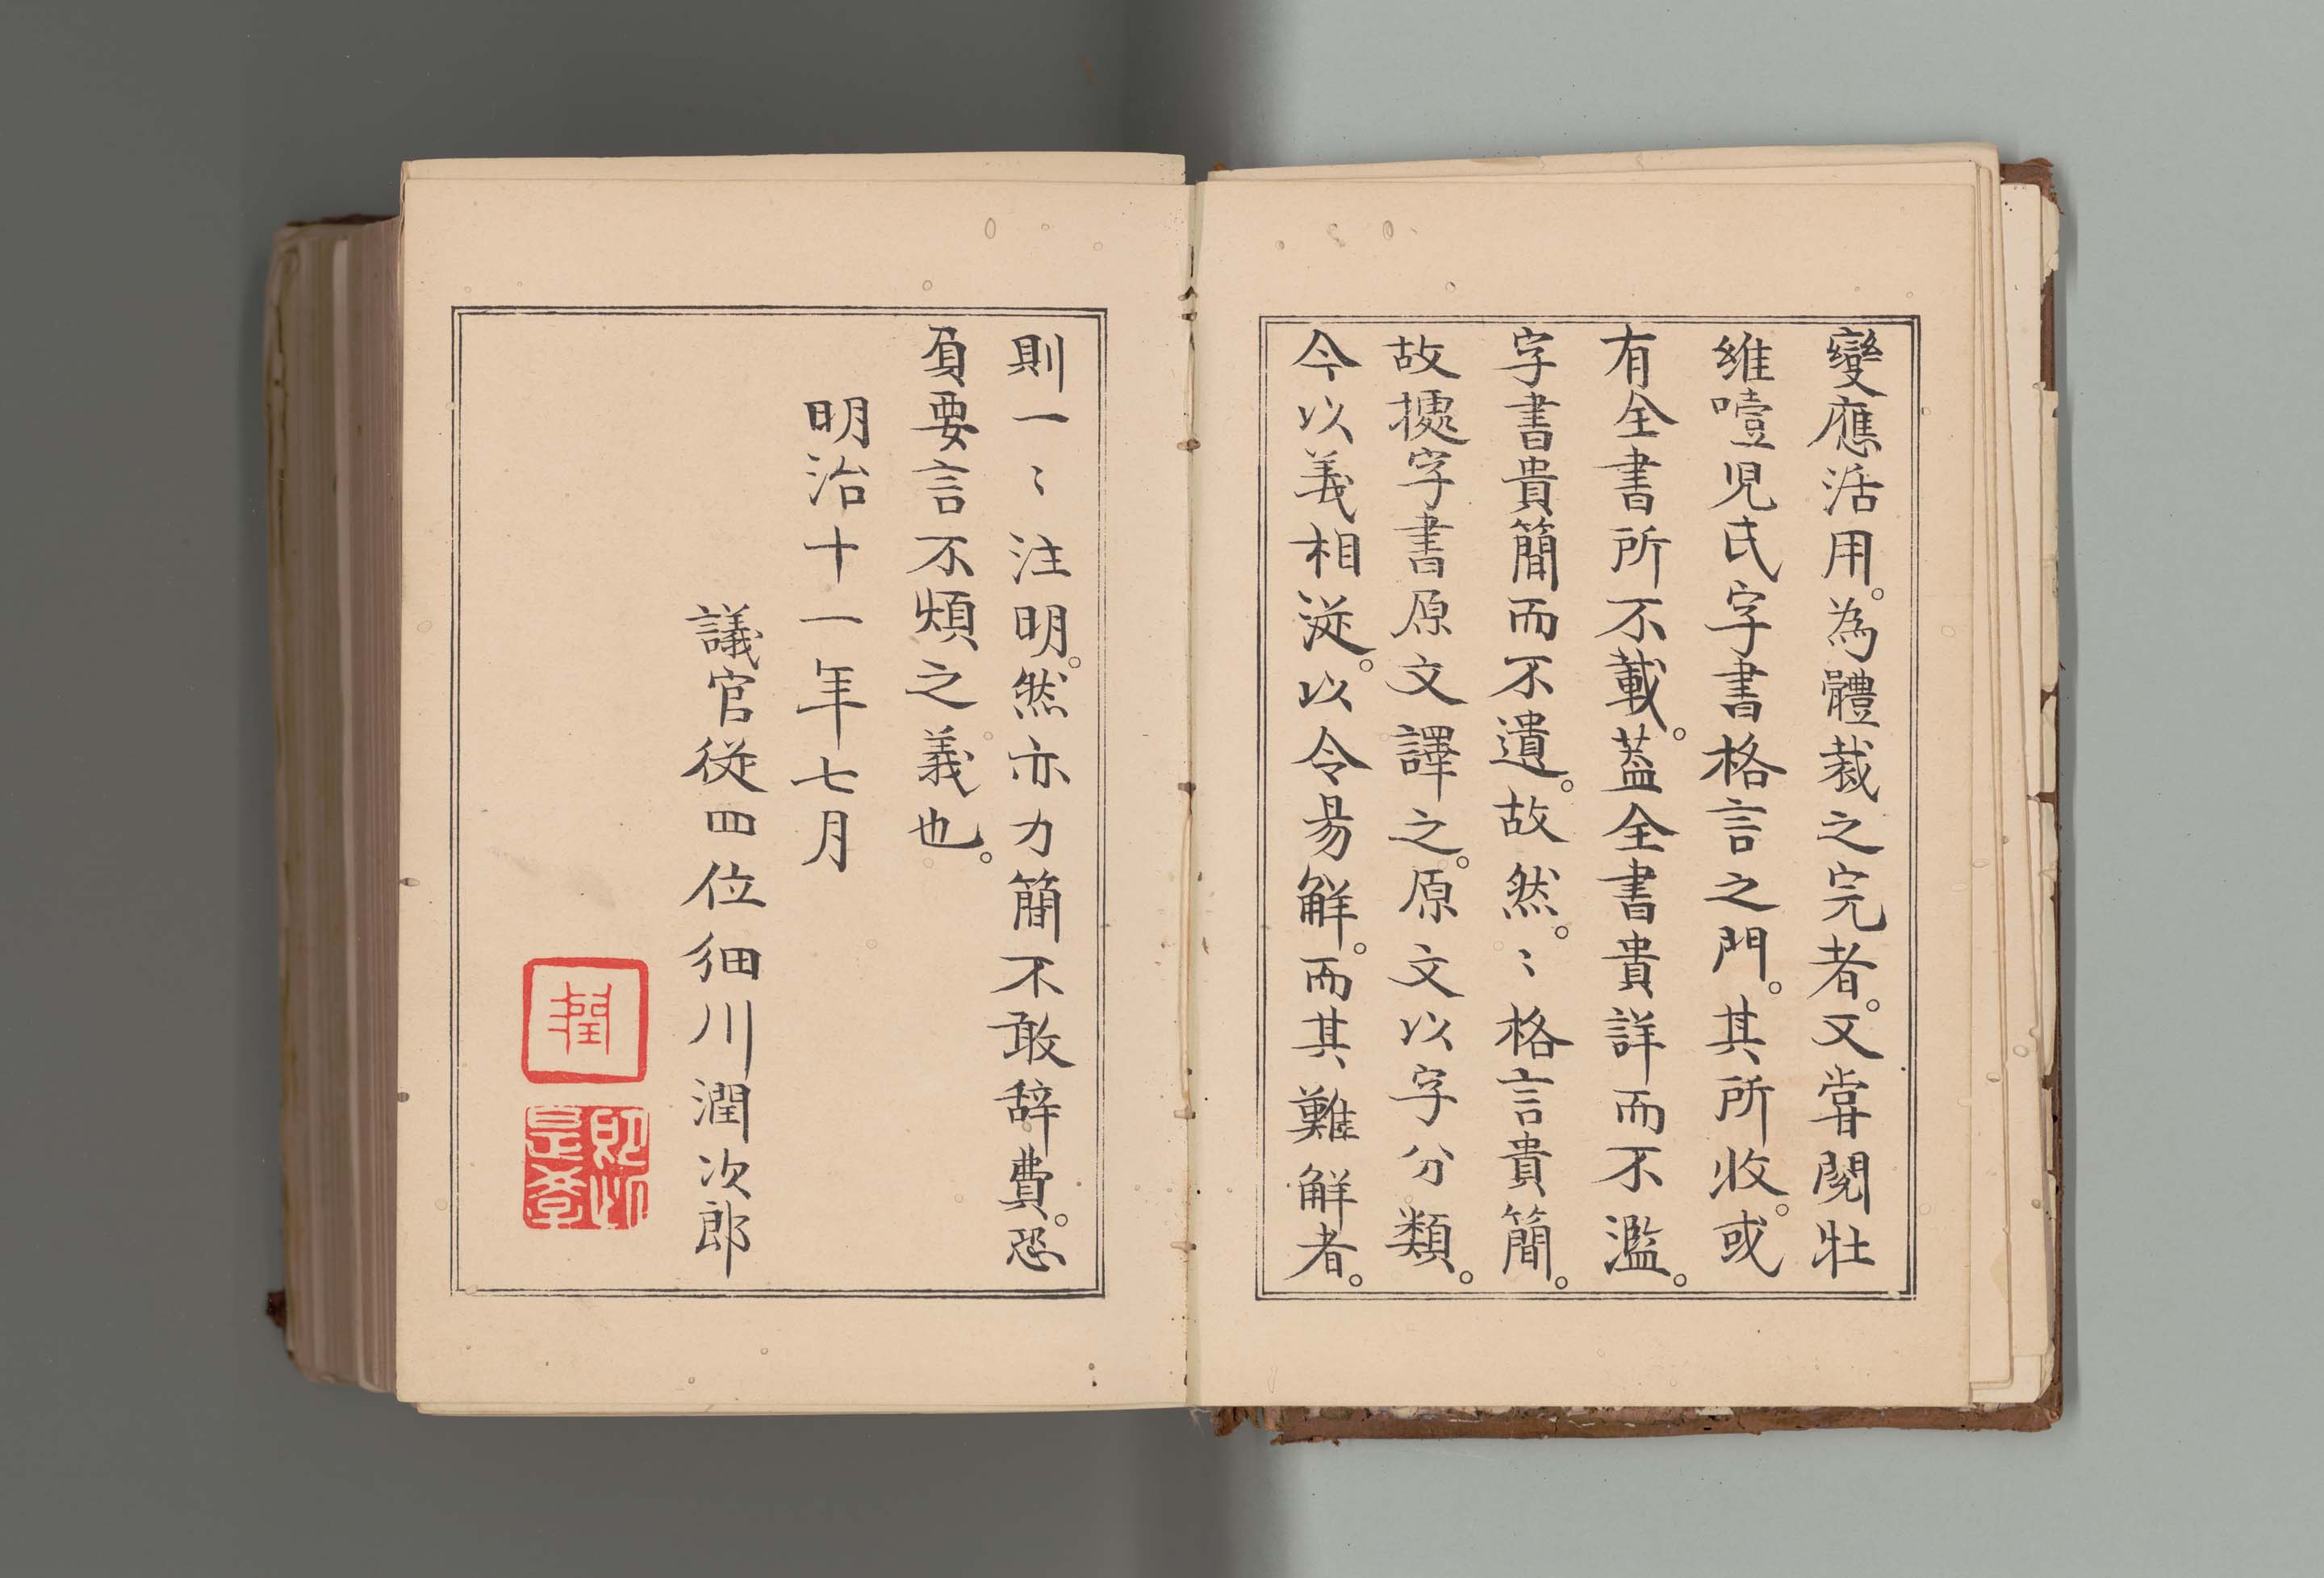 變應活用。為體裁之完者。又嘗閱壯
維噎児氏字書格言之門。其所收。或
有全書所不載。蓋全書貴詳而不濫。
字書貴簡而不遺。故然。〻格言貴簡。
故摭字書原文譯之。原文以字分類。
今以義相從。以令易解。而其難解者。
則一〻注明。然亦力簡不敢辞費。恐
負要言不煩之義也。
明治十一年七月
議官從四位細川潤次郎
潤